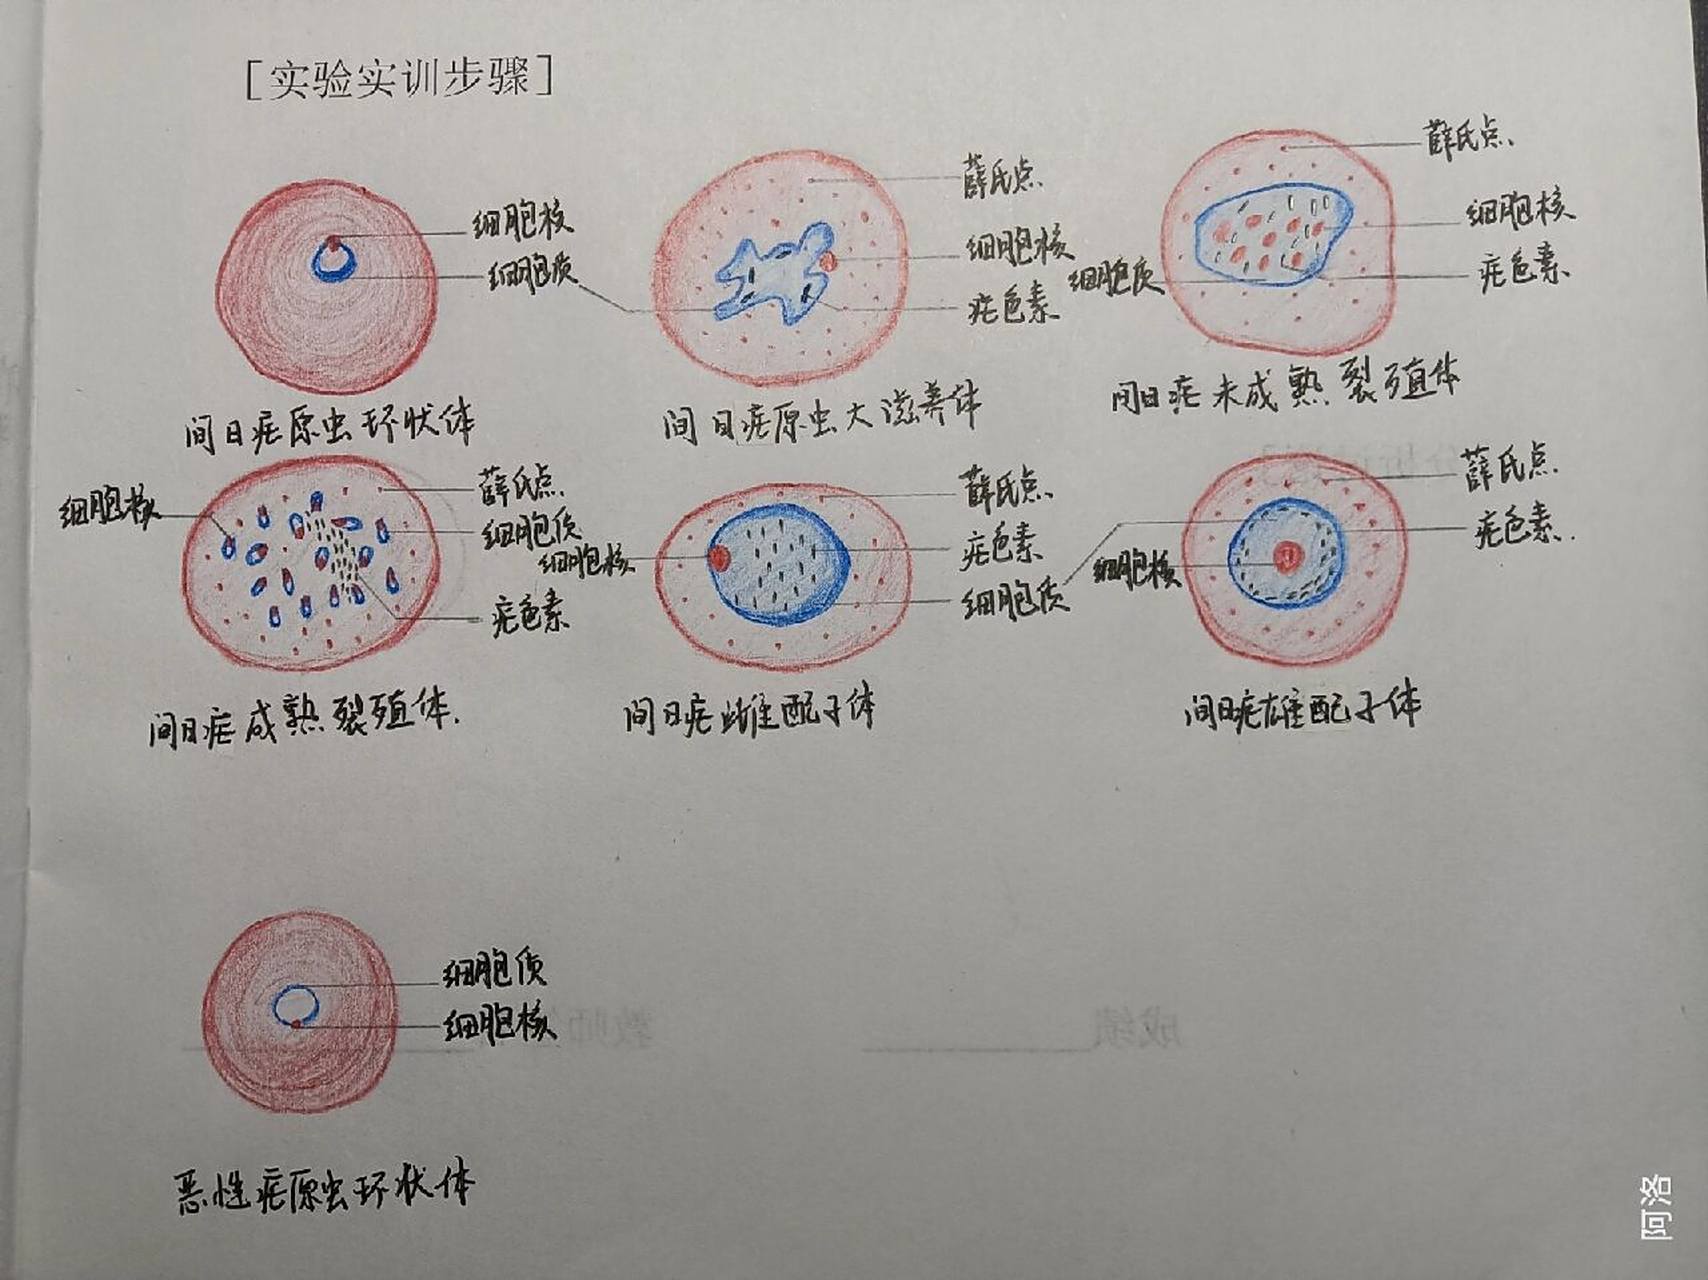 [实验实训步骤]
细胞核
细胞质
间日疟原虫环状体
薛氏点
细胞核
疟色素
间日疟原虫大滋养体
薛氏点
细胞核
细胞质
疟色素
间日疟未成熟裂殖体
细胞核
薛氏点
细胞质
疟色素
间日疟成熟裂殖体.
薛氏点
疟色素
细胞核
细胞质
间日疟雌配子体
薛氏点
疟色素.
细胞核
间日疟雄配子体
细胞质
细胞核
恶性疟原虫环状体
成绩
教师
阿洛